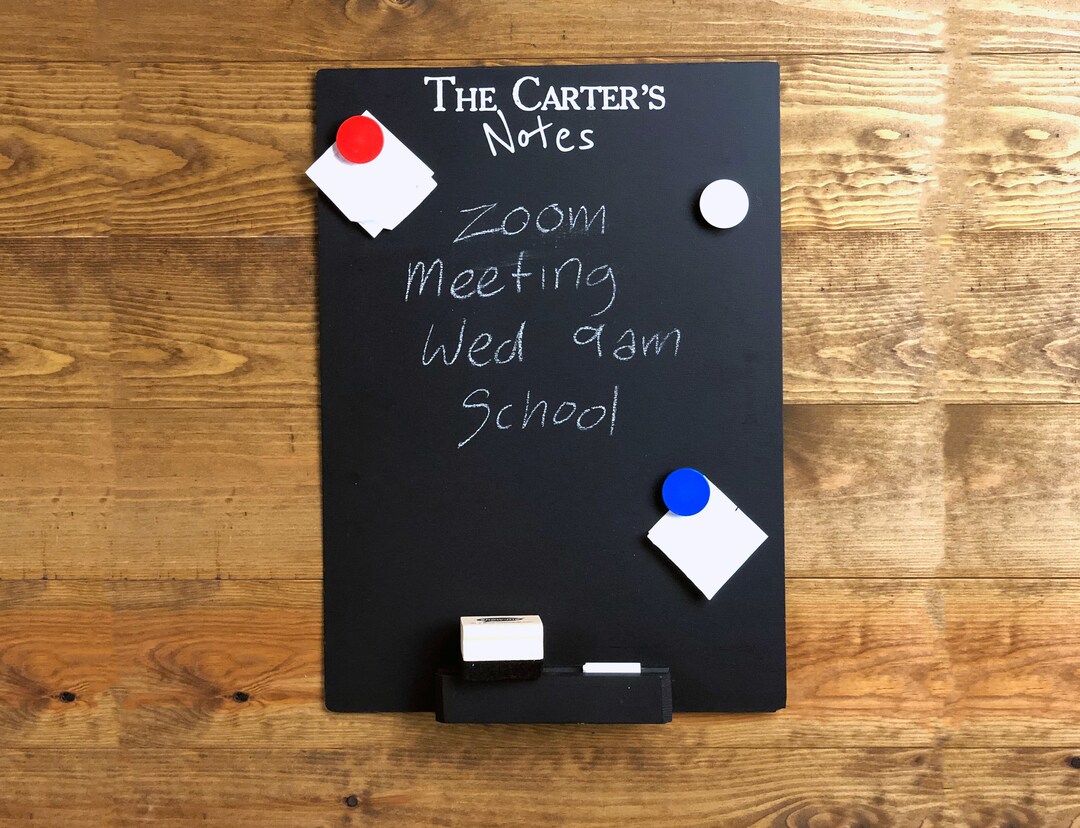 THE CARTER'S
Notes
Zoom
Meeting
Wed 9am
School